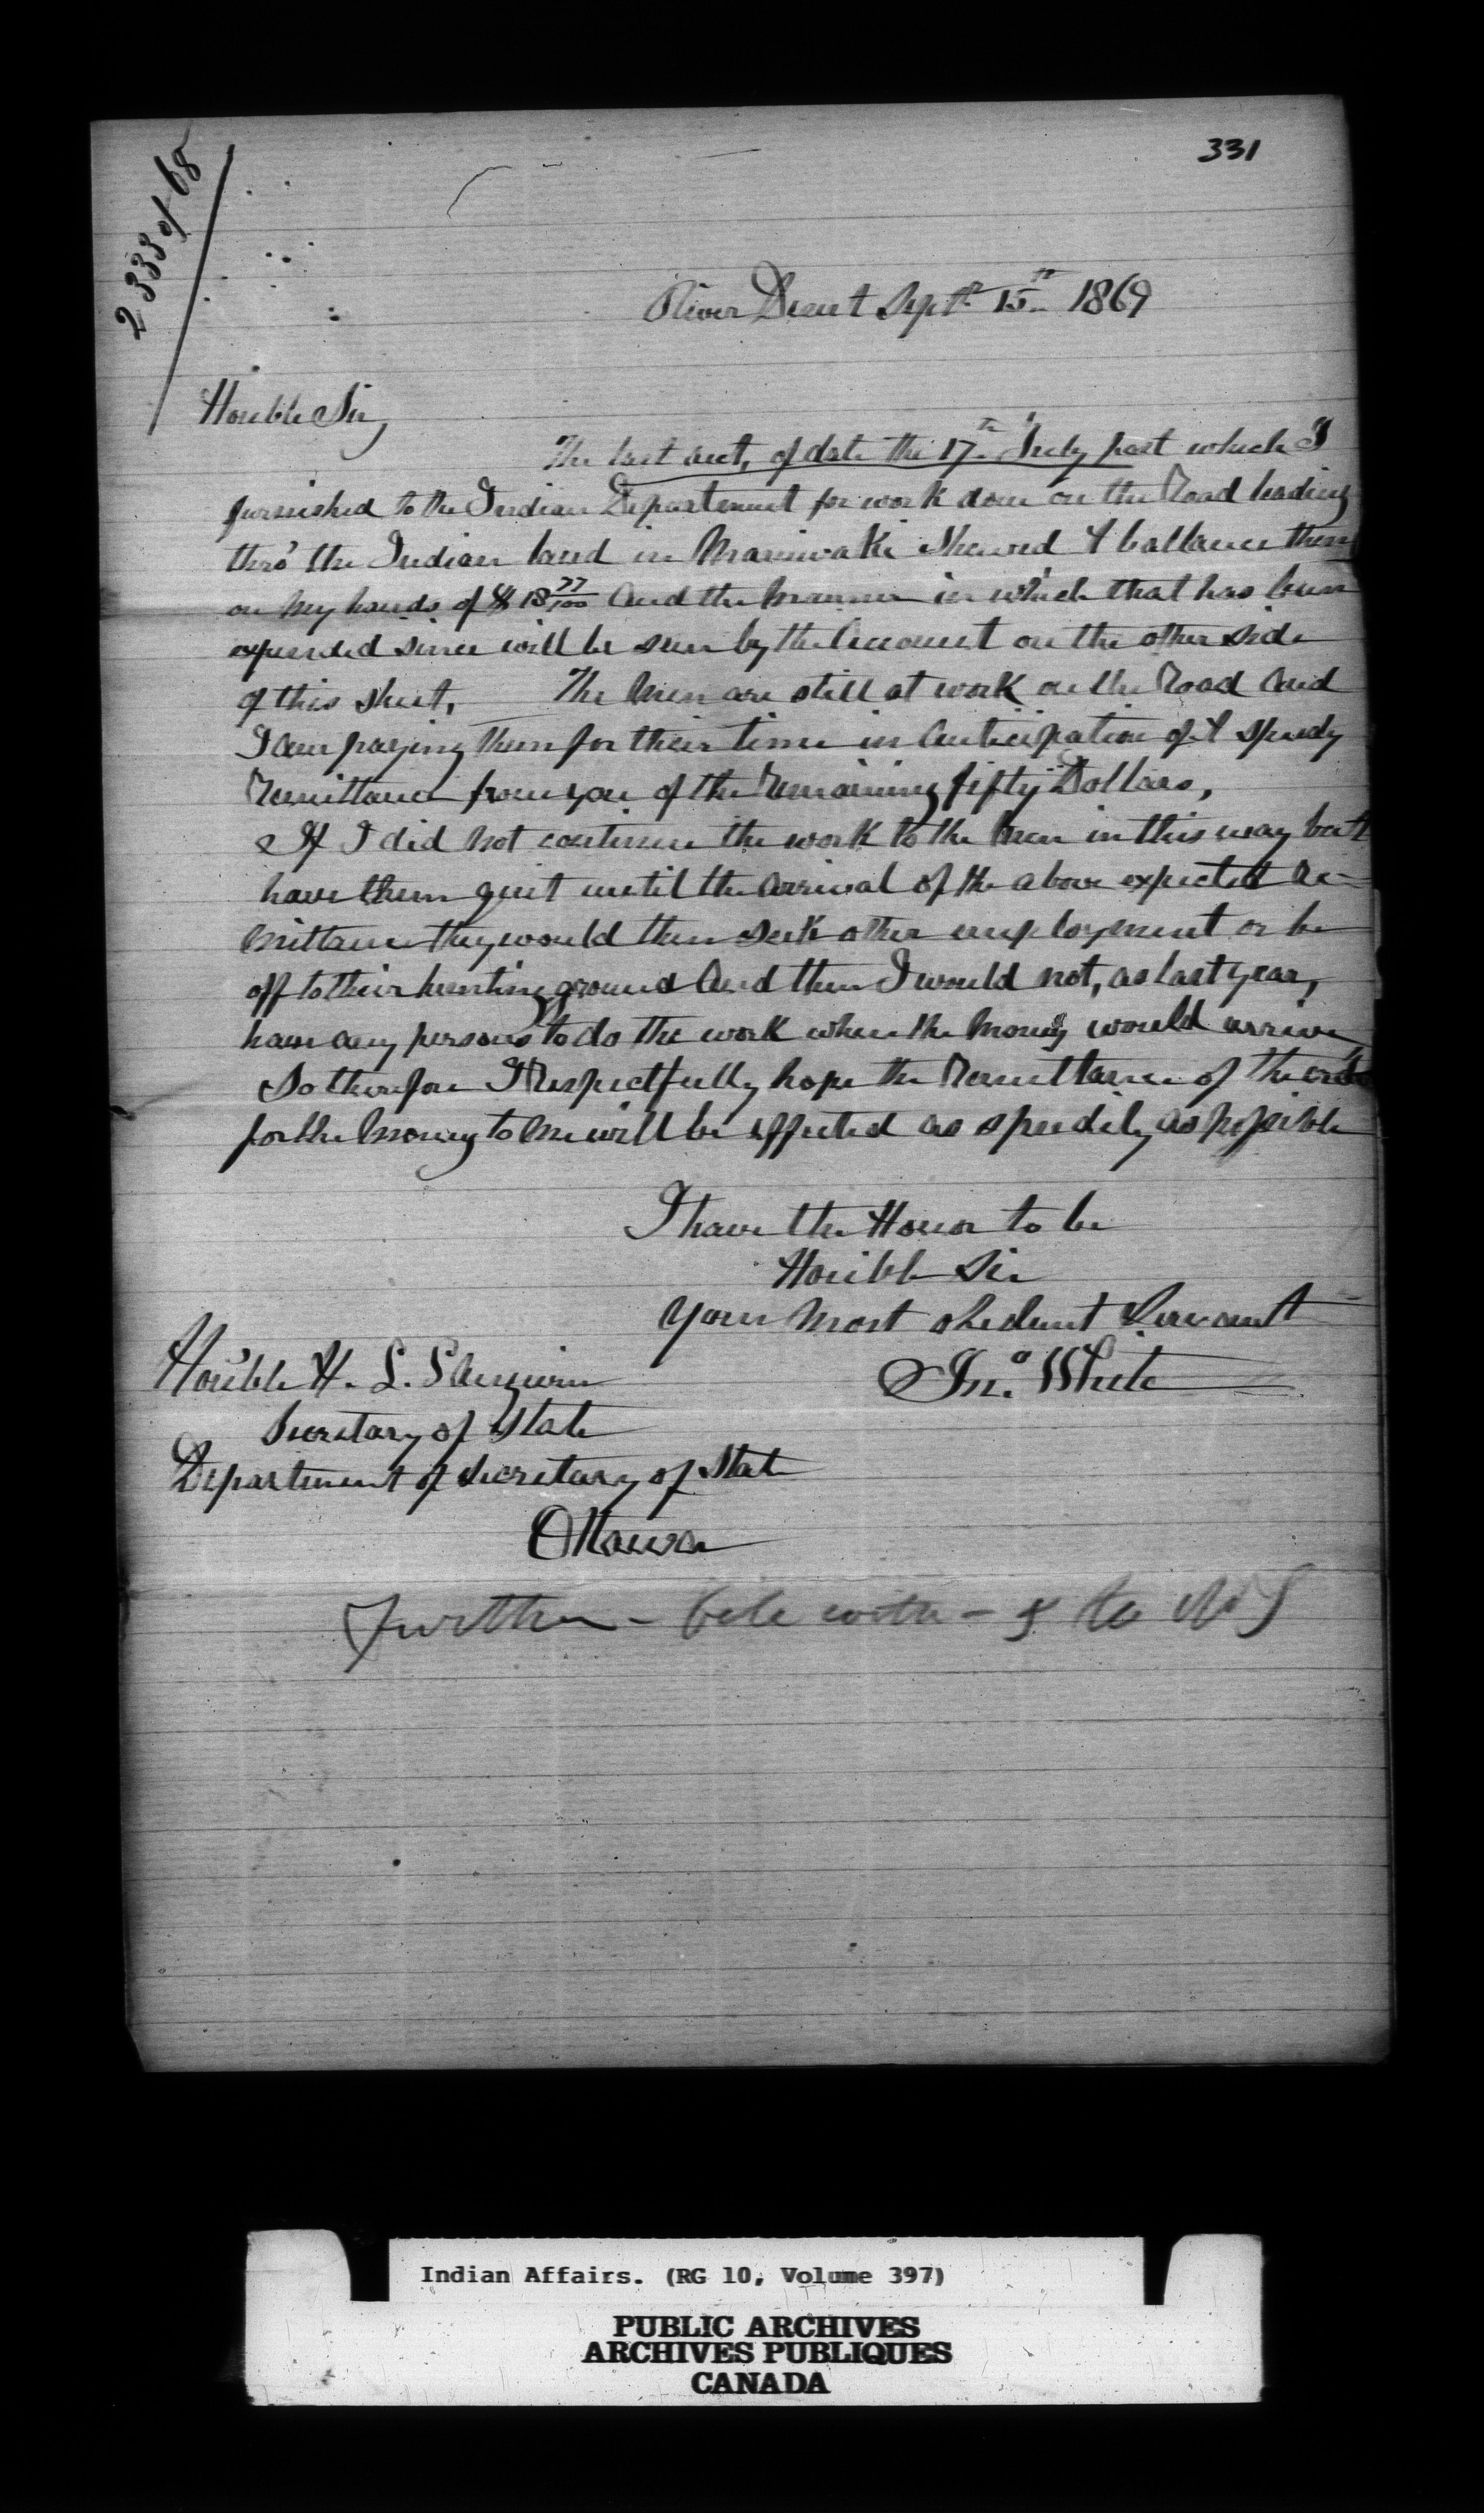 331
2333 of 68
River Desert Septr. 15th 1869
Honble Sir,
The last acct, of date the 17th July past which I
furnished to the Indian Department for work done on the Road leading
thro' the Indian land in Maniwaki Shewed A ballance then
on my hands of $18 77/100 And the Manner in which that has been
expended since will be seen by the Account on the other side
of this sheet, The Men are still at work on the Road And
I am paying them for their time in Anticipation of A speedy
Remittance from you of the Remaining fifty Dollars,
If I did not continue the work to the Men in this way but
have them quit until the Arrival of the above expected Re-
mittance they would then seek other employment or be
off to their hunting ground And then I would not, as last year,
have any persons to do the work when the Money would arrive,
So therefore I Respectfully hope the Remittance of the order
for the Money to Me will be effected as speedily as possible
I have the Honor to be
Honble Sir
Your Most obedient Servant
Jno. White
Honble H. L. Langevin
Secretary of State
Department of Secretary of State
Ottawa
Further - file with -
Indian Affairs. (RG 10, Volume 397)
PUBLIC ARCHIVES
ARCHIVES PUBLIQUES
CANADA